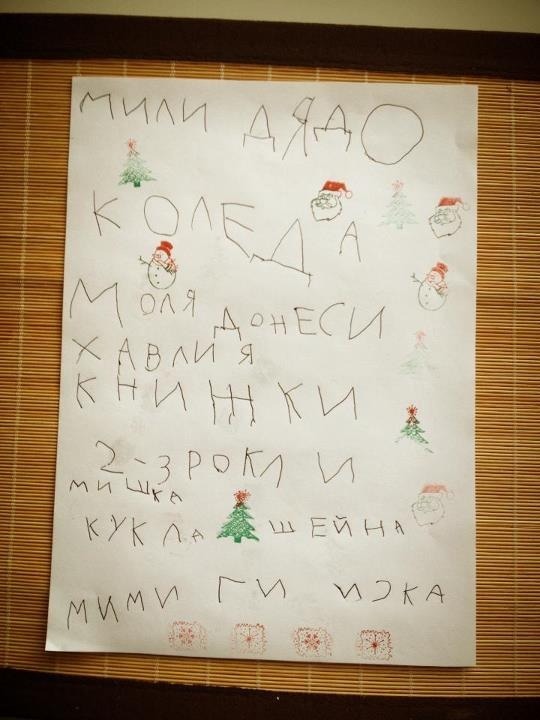 МИЛИ ДЯДО
КОЛЕДА
МОЛЯ ДОНЕСИ
ХАВЛИЯ
КНИЖКИ
2-3 РОКЛИ
МИШКА
КУКЛА ШЕЙНА
МИМИ ГИ ИСКА